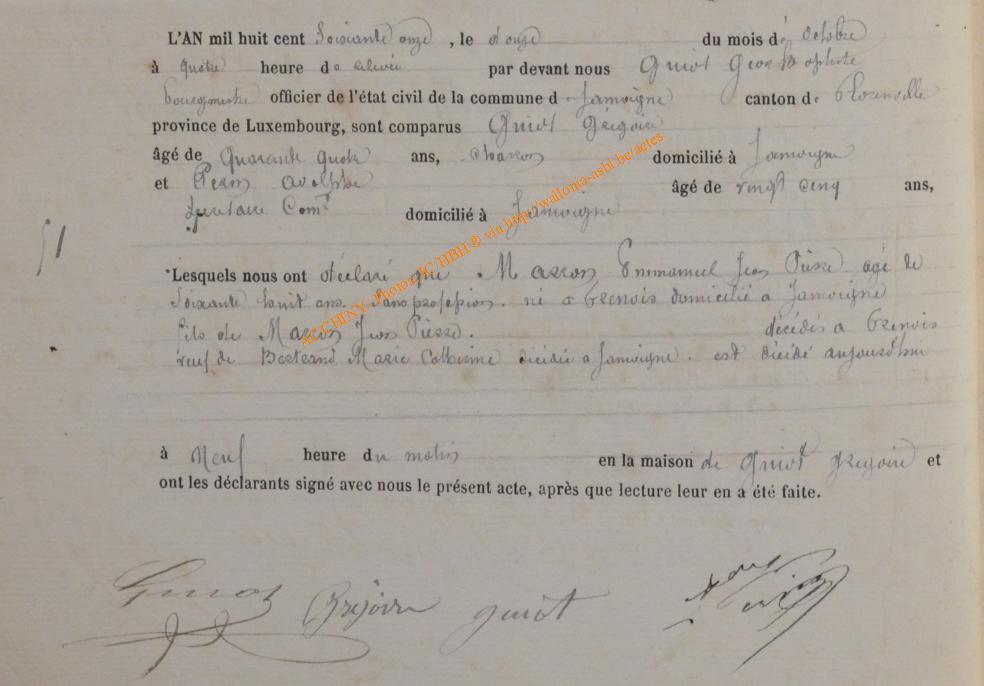 L'AN mil huit cent Soixante onze , le douze du mois d'octobre
à quatre heure de relevée par devant nous Guiot
bourgmestre officier de l'état civil de la commune d Jamoigne canton de Florenville
province de Luxembourg, sont comparus Guiot Grégoire
âgé de Quarante quatre ans, charron domicilié à Jamoigne
et Pierson adolphe âgé de vingt cinq ans,
Secretaire Com.l domicilié à Jamoigne
51
Lesquels nous ont déclaré que Masson Emmanuel Jean Pierre agé de
Soixante huit ans. Sans profession. né à domicilié a Jamoigne
fils de Masson Jean Pierre. décédés à
veuf de Bertrand Marie Catherine décédée a Jamoigne. est décédé aujourd'hui
à Neuf heure du matin en la maison de Guiot Grégoire et
ont les déclarants signé avec nous le présent acte, après que lecture leur en a été faite.
Guiot Grégoire guiot
Ac CHINY - Photos JC/HBH® via http//wallonia-asbl.be/actes